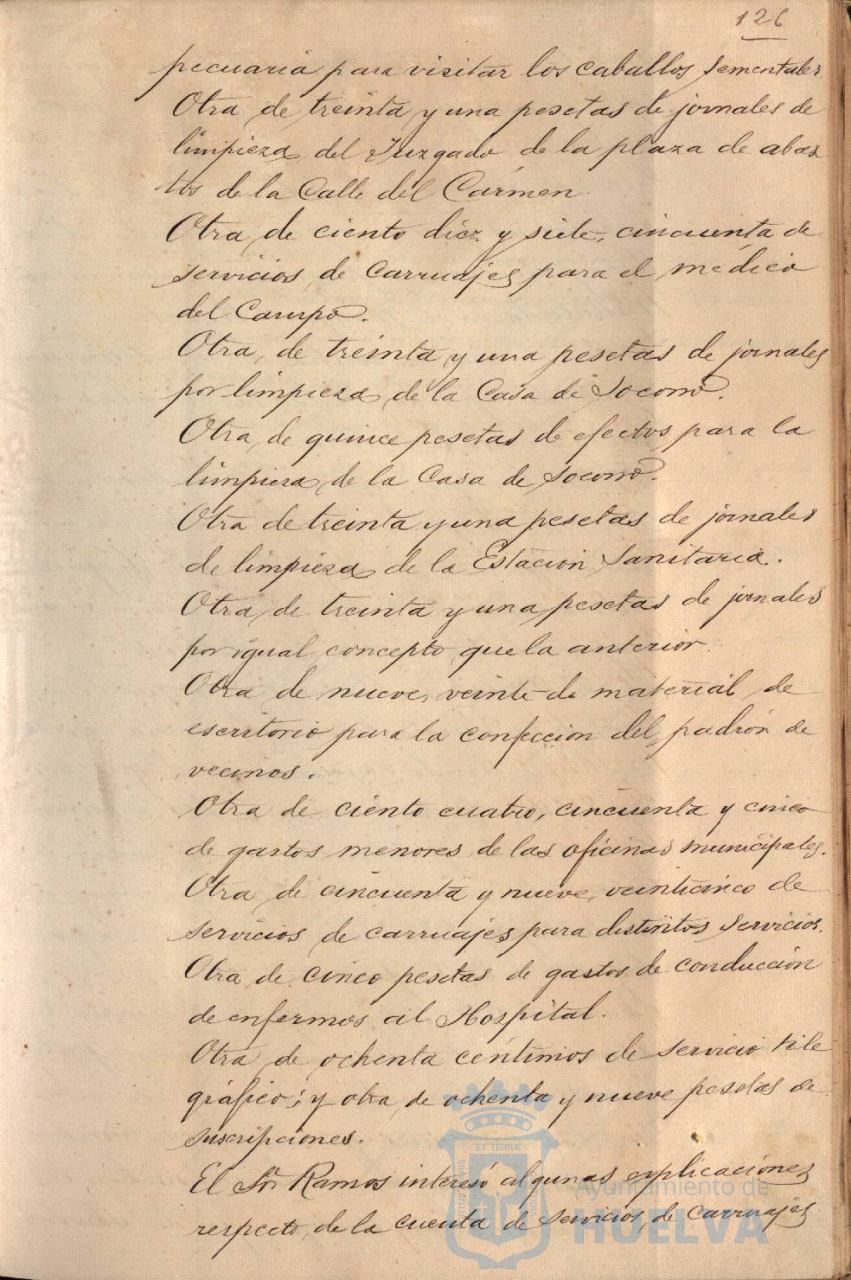 126
pecuaria para visitar los caballos sementales
Otra de treinta y una pesetas de jornales de
limpieza del Juzgado de la plaza de abas
tos de la Calle del Carmen.
Otra de ciento diez y siete, cincuenta de
servicios de carruajes para el médico
del Campo.
Otra de treinta y una pesetas de jornales
por limpieza de la Casa de Socorro.
Otra de quince pesetas de efectos para la
limpieza de la Casa de Socorro.
Otra de treinta y una pesetas de jornales
de limpieza de la Estación Sanitaria.
Otra de treinta y una pesetas de jornales
por igual concepto que la anterior.
Otra de nueve, veinte de material de
escritorio para la confección del padrón de
vecinos.
Otra de ciento cuatro, cincuenta y cinco
de gastos menores de las oficinas municipales.
Otra de cincuenta y nueve, veinticinco de
servicios de carruajes para distintos servicios.
Otra de cinco pesetas de gastos de conducción
de enfermos al Hospital.
Otra de ochenta centimos de servicio tele
gráfico; y otra de ochenta y nueve pesetas de
suscripciones.
El Sr. Ramos interesó algunas explicaciones
respecto de la cuenta de servicios de carruajes
ET TERRÆ
Ayuntamiento de
HUELVA